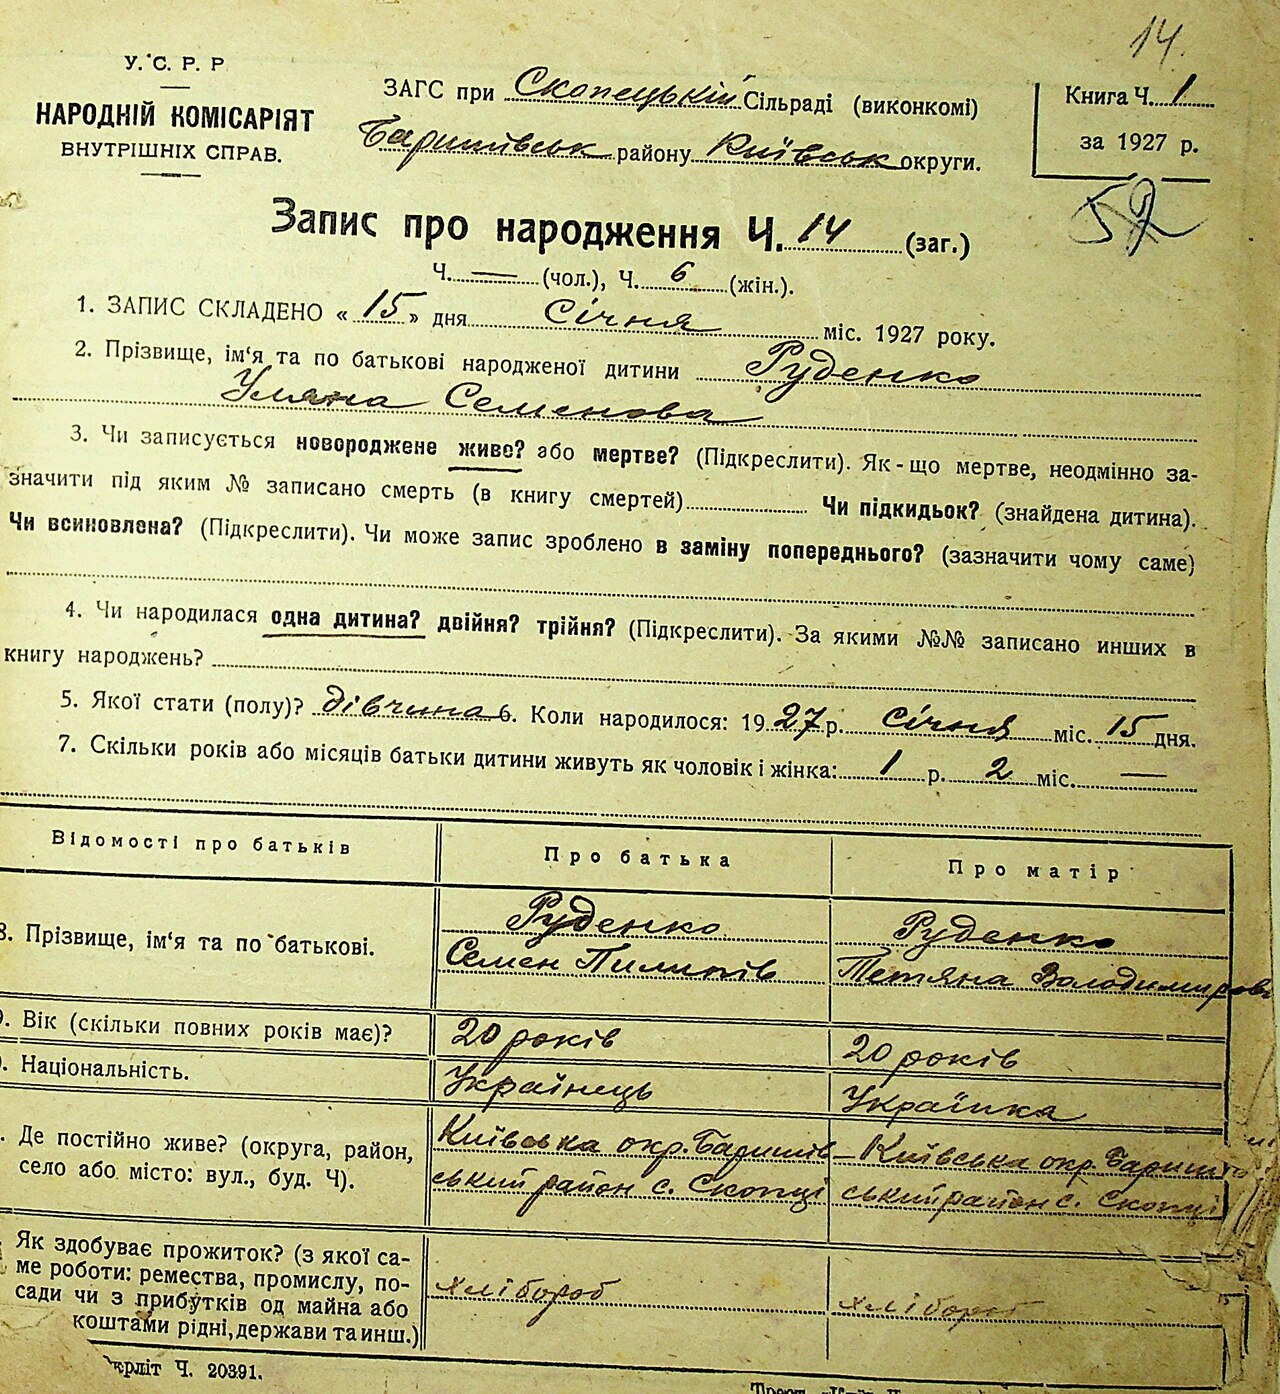 14.
У.С.Р.Р
НАРОДНІЙ КОМІСАРІЯТ
ВНУТРІШНІХ СПРАВ.
ЗАГС при Скопецькій Сільраді (виконкомі)
Баришівськ району Київськ округи.
Книга Ч. 1
за 1927 р.
52
Запис про народження Ч. 14 (заг.)
Ч. — (чол.), Ч. 6 (жін.).
1. ЗАПИС СКЛАДЕНО « 15 » дня Січня міс. 1927 року.
2. Прізвище, ім‘я та по батькові народженої дитини Руденко
Уляна Семенова
3. Чи записується новороджене живе? або мертве? (Підкреслити). Як-що мертве, неодмінно за-
значити під яким № записано смерть (в книгу смертей) Чи підкидьок? (знайдена дитина).
Чи всиновлена? (Підкреслити). Чи може запис зроблено в заміну попереднього? (зазначити чому саме)
4. Чи народилася одна дитина? двійня? трійня? (Підкреслити). За якими №№ записано инших в
книгу народжень?
5. Якої стати (полу)? дівчина 6. Коли народилося: 1927 р. січня міс. 15 дня.
7. Скільки років або місяців батьки дитини живуть як чоловік і жінка: 1 р. 2 міс. —
Відомості про батьків Про батька Про матір
8. Прізвище, ім‘я та по батькові. Руденко Руденко
Семен Пилипів Тетяна Володимирова
9. Вік (скільки повних років має)? 20 років 20 років
. Національність. Українець Українка
. Де постійно живе? (округа, район, Київська окр. Баришів- Київська окр. Баришів
село або місто: вул., буд. Ч). ський район с. Скопці ський район с. Скопці
Як здобуває прожиток? (з якої са-
ме роботи: ремества, промислу, по-
сади чи з прибутків од майна або хлібороб хлібороб
коштами рідні, держави та инш.)
рліт Ч. 20391.